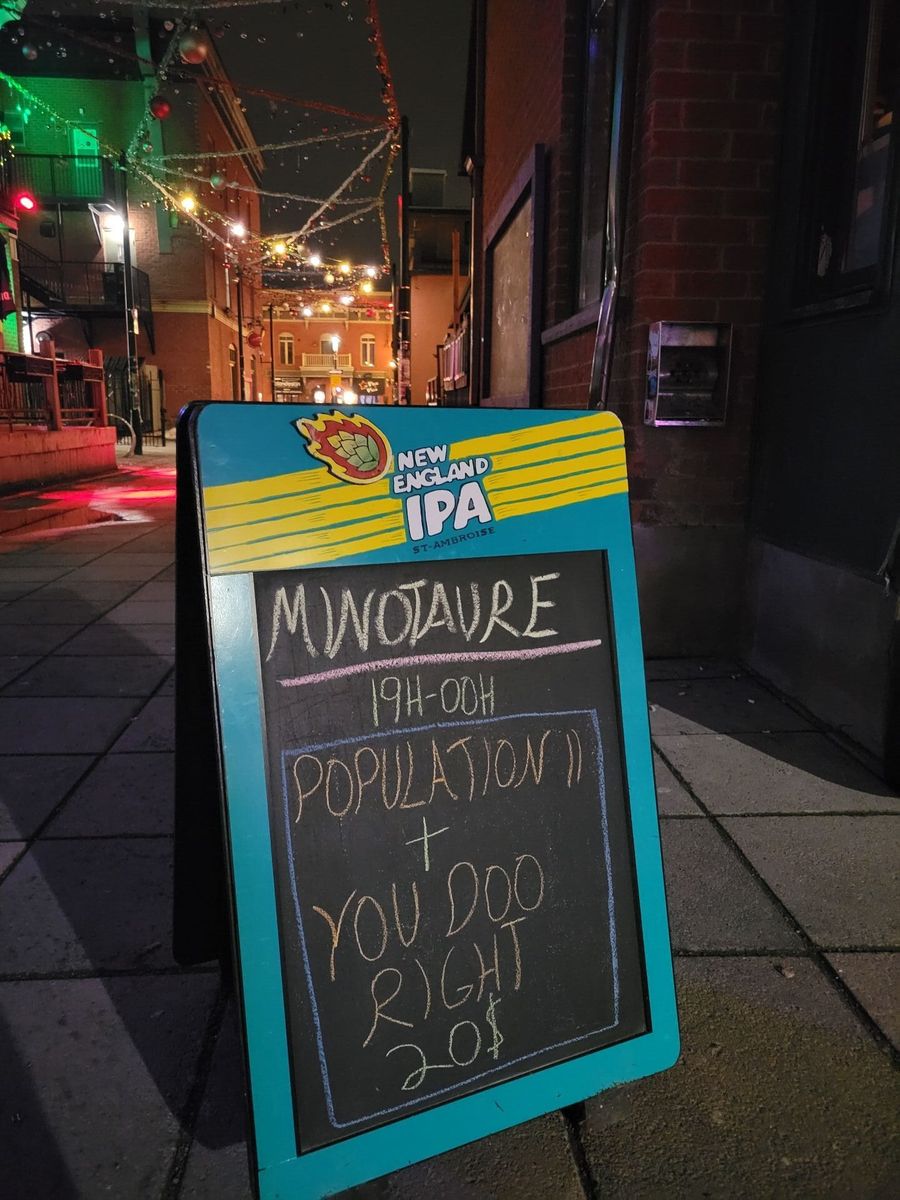 NEW
ENGLAND
IPA
ST-AMBROISE
MINOTAURE
19H-00H
POPULATION II
+
YOU DOO
RIGHT
20$